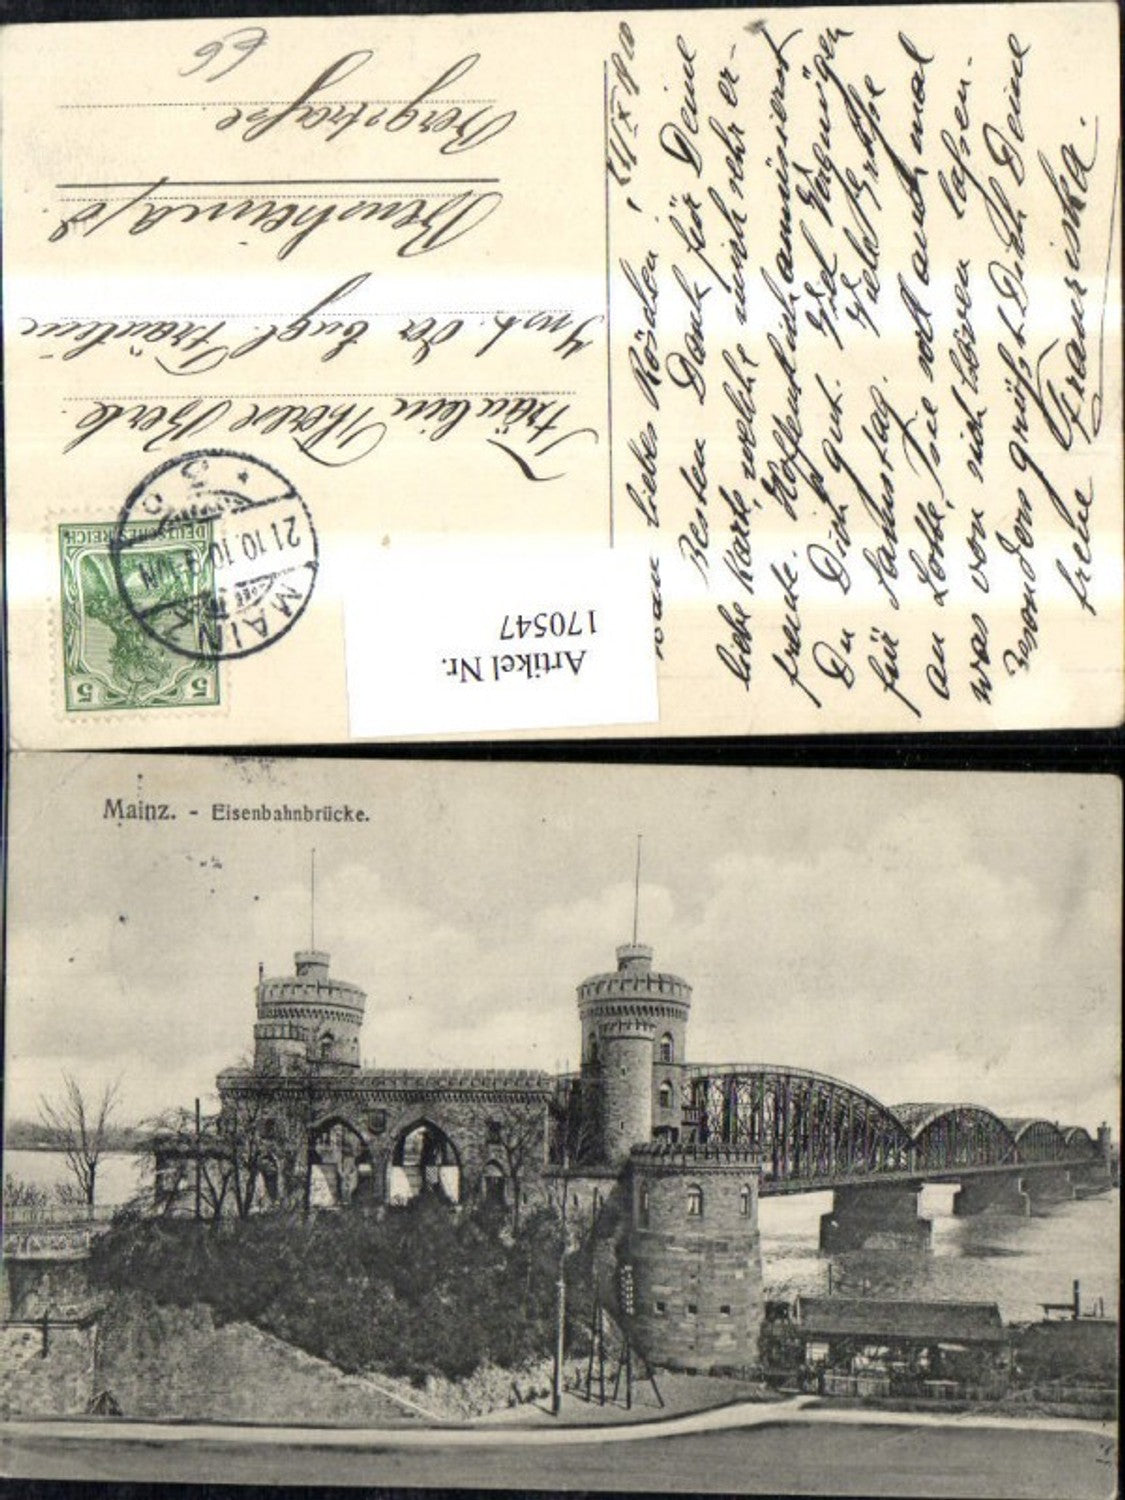 21/X 1910
liebes Röschen!
Besten Dank für Deine
liebe Karte, welche mich sehr er-
freute. Hoffentlich amüsierst
Du Dich gut. Viel Vergnügen
für Samstag. Viele Grüße
an Lotte, sie soll auch mal
was von sich hören lassen.
Besonders grüßt Dich Deine
treue Franziska.
Fräulein
Inst. der Engl. Fräulein
Bensheim a/d.
Bergstraße.
66
DEUTSCHES REICH
5 5
MAINZ
21.10.10
Artikel Nr.
170547
Mainz. - Eisenbahnbrücke.